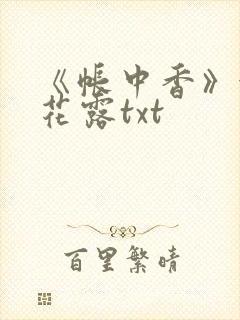 《帐中香》
花露txt
百里繁晴